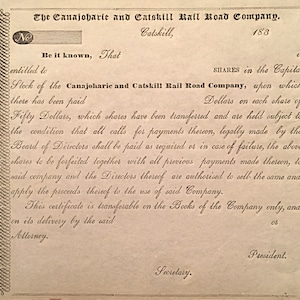 The Canajoharie and Catskill Rail Road Company.
No
Catskill, 183
Be it known, That
entitled to SHARES in the Capital
Stock of the Canajoharie and Catskill Rail Road Company, upon which
there has been paid Dollars on each share of
Fifty Dollars, which shares have been transferred and are held subject to
the condition that all calls for payments thereon, legally made by the
Board of Directors shall be paid as required or in case of failure, the above
shares to be forfeited together with all previous payments made thereon, to
said company and the Directors thereof are authorised to sell the same and
apply the proceeds thereof to the use of said Company.
This certificate is transferable on the Books of the Company only, and
on its delivery by the said or
Attorney.
President.
Secretary.